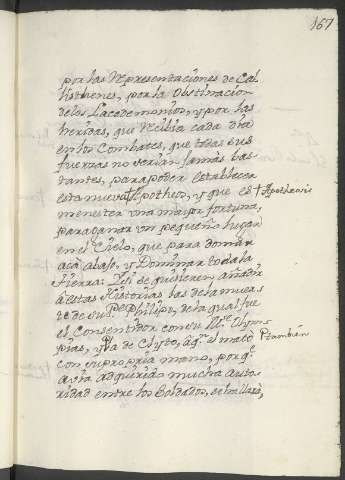 167
por las Representaciones de Cal
listhenes, por la Obstinacion
de los Lacedemonios, y por las
heridas, que Recibia cada dia
en los Combates, que todas sus
fuerzas no serian jamàs bas
tantes, para poder establecer
esta nueva † Apotheos, y que es † Apotheosis
menester una mayor fortuna,
para ganar un pequeño lugar
en el Cielo, que para domar
acà abajo, y Dominar toda la
tierra: Y si se quisieren añadir
à estas Historias las de la muer
te de su Pe Philipe, de la qual fue
el Consentidor con su Me Olym
pias, y la de Clyto, à qn el matò P tambien
con su propria mano, porqe
avia adquirido mucha auto
ridad entre los Soldados,